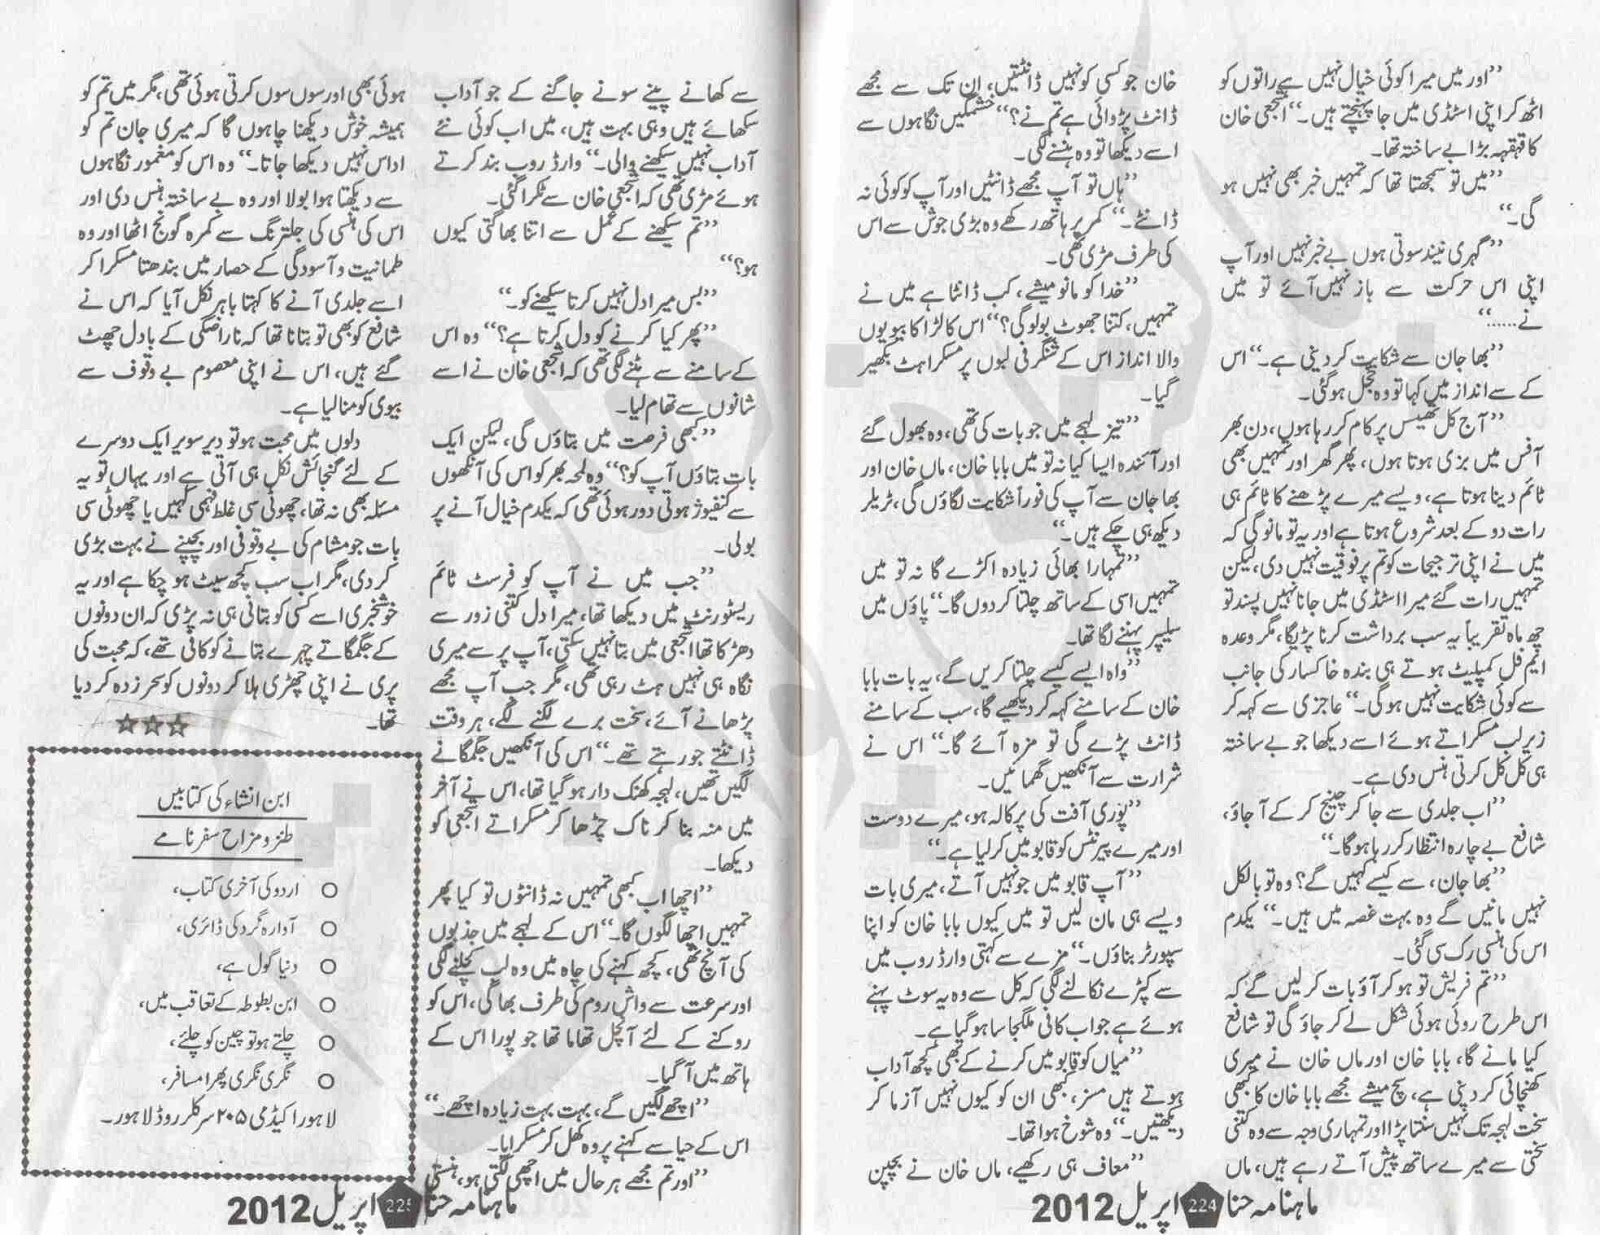 ”اور میں میرا کوئی خیال نہیں ہے راتوں کو
اٹھ کر اپنی اسٹڈی میں جا پہنچتے ہیں۔“ اتجعی خان
کا قہقہہ بڑا بے ساختہ تھا۔
”میں تو سمجھتا تھا کہ تمہیں خبر بھی نہیں ہو
گی۔“
”گہری نیند سوتی ہوں بے خبر نہیں اور آپ
اپنی اس حرکت سے باز نہیں آئے تو میں
نے......“
”بھا جان سے شکایت کر دینی ہے۔“ اس
کے سے انداز میں کہا تو وہ خجل ہو گئی۔
”آج کل تھیسس پر کام کر رہا ہوں، دن بھر
آفس میں بزی ہوتا ہوں، پھر گھر اور تمہیں بھی
ٹائم دینا ہوتا ہے، ویسے میرے پڑھنے کا ٹائم ہی
رات دو کے بعد شروع ہوتا ہے اور یہ تو مانو گی کہ
میں نے اپنی ترجیحات کو تم پر فوقیت نہیں دی، لیکن
تمہیں رات گئے میرا اسٹڈی میں جانا نہیں پسند تو
چھ ماہ تقریباً یہ سب برداشت کرنا پڑیگا، مگر وعدہ
ایم فل کمپلیٹ ہوتے ہی بندہ خاکسار کی جانب
سے کوئی شکایت نہیں ہوگی۔“ عاجزی سے کہہ کر
زیرلب مسکراتے ہوئے اسے دیکھا جو بے ساختہ
ہی کل کل کرتی ہنس دی ہے۔
”اب جلدی سے جا کر چینج کر کے آ جاؤ،
شافع بے چارہ انتظار کر رہا ہوگا۔“
”بھا جان، سے کیسے کہیں گے؟ وہ تو بالکل
نہیں مانیں گے وہ بہت غصہ میں ہیں۔“ یکدم
اس کی ہنسی رک سی گئی۔
”تم فریش تو ہو کر آؤ بات کر لیں گے کہ
اس طرح روئی ہوئی شکل لے کر جاؤ گی تو شافع
کیا مانے گا، بابا خان اور ماں خان نے میری
کھنچائی کر دینی ہے، سچ میشے مجھے بابا خان کا کبھی
سخت لہجہ تک نہیں سننا پڑا اور تمہاری وجہ سے وہ کتنی
سختی سے میرے ساتھ پیش آتے رہے ہیں، ماں
خان جو کسی کو نہیں ڈانٹتیں، ان تک سے مجھے
ڈانٹ پڑوائی ہے تم نے؟“ خشمگیں نگاہوں سے
اسے دیکھا تو وہ ہنسنے لگی۔
”ہاں تو آپ مجھے ڈانٹیں اور آپ کو کوئی نہ
ڈانٹے۔“ کمر پر ہاتھ رکھے وہ بڑی جوش سے اس
کی طرف مڑی تھی۔
”خدا کو مانو میشے، کب ڈانٹا ہے میں نے
تمہیں، کتنا جھوٹ بولو گی؟“ اس کا لڑاکا بیویوں
والا انداز اس کے شنگرفی لبوں پر مسکراہٹ بکھیر
گیا۔
”تیز لہجے میں جو بات کی تھی، وہ بھول گئے
اور آئندہ ایسا کیا نہ تو میں بابا خان، ماں خان اور
بھا جان سے آپ کی فوراً شکایت لگاؤں گی، ٹریلر
دیکھ ہی چکے ہیں۔“
”تمہارا بھائی زیادہ اکڑے گا نہ تو میں
تمہیں اسی کے ساتھ چلتا کر دوں گا۔“ پاؤں میں
سلیپر پہننے لگا تھا۔
”واہ ایسے کیسے چلتا کریں گے، یہ بات بابا
خان کے سامنے کہہ کر دیکھیے گا، سب کے سامنے
ڈانٹ پڑے گی تو مزہ آئے گا۔“ اس نے
شرارت سے آنکھیں گھمائیں۔
”پوری آفت کی پرکالہ ہو، میرے دوست
اور میرے پیرنٹس کو قابو میں کر لیا ہے۔“
”آپ قابو میں جو نہیں آتے، میری بات
ویسے ہی مان لیں تو میں کیوں بابا خان کو اپنا
سپورٹر بناؤں۔“ مزے سے کہتی وارڈ روب میں
سے کپڑے نکالنے لگی کہ کل سے وہ یہ سوٹ پہنے
ہوئے ہے جو اب کافی ملگجا سا ہو گیا ہے۔
”میاں کو قابو میں کرنے کے بھی کچھ آداب
ہوتے ہیں مسز، کبھی ان کو کیوں نہیں آزما کر
دیکھتیں۔“ وہ شوخ ہوا تھا۔
”معاف ہی رکھیے، ماں خان نے بچپن
ماہنامہ حنا 224 اپریل 2012
سے کھانے پینے سونے جاگنے کے جو آداب
سکھائے ہیں وہی بہت ہیں، میں اب کوئی نئے
آداب نہیں سیکھنے والی۔“ وارڈ روب بند کرتے
ہوئے مڑی تھی کہ اتجعی خان سے ٹکرا گئی۔
”تم سیکھنے کے عمل سے اتنا بھاگتی کیوں
ہو؟“
”بس میرا دل نہیں کرتا سیکھنے کو۔“
”پھر کیا کرنے کو دل کرتا ہے؟“ وہ اس
کے سامنے سے ہٹنے لگی تھی کہ اتجعی خان نے اسے
شانوں سے تھام لیا۔
”کبھی فرصت میں بتاؤں گی، لیکن ایک
بات بتاؤں آپ کو؟“ وہ لمحہ بھر کو اس کی آنکھوں
سے کنفیوژ ہوئی دور ہوئی تھی کہ یکدم خیال آنے پر
بولی۔
”جب میں نے آپ کو فرسٹ ٹائم
ریسٹورنٹ میں دیکھا تھا، میرا دل کتنی زور سے
دھڑکا تھا اتجعی میں بتا نہیں سکتی، آپ پر سے میری
نگاہ ہی نہیں ہٹ رہی تھی، مگر جب آپ مجھے
پڑھانے آئے، سخت برے لگنے لگے، ہر وقت
ڈانٹتے جو رہتے تھے۔“ اس کی آنکھیں جگمگانے
لگیں تھیں، لہجہ کھنک دار ہو گیا تھا، اس نے آخر
میں منہ بنا کر ناک چڑھا کر مسکراتے اتجعی کو
دیکھا۔
”اچھا اب کبھی تمہیں نہ ڈانٹوں تو کیا پھر
تمہیں اچھا لگوں گا۔“ اس کے لہجے میں جذبوں
کی آنچ تھی، کچھ کہنے کی چاہ میں وہ لب کچلنے لگی
اور سرعت سے واش روم کی طرف بھاگی، اس کو
روکنے کے لئے آنچل تھاما تھا جو پورا اس کے
ہاتھ میں آ گیا۔
”اچھے لگیں گے، بہت بہت زیادہ اچھے۔“
اس کے حیا سے کہنے پر وہ کھل کر مسکرایا۔
”اور تم مجھے ہر حال میں اچھی لگتی ہو، ہنستی
ہوئی بھی اور سوں سوں کرتی ہوئی بھی، مگر میں تم کو
ہمیشہ خوش دیکھنا چاہوں گا کہ میری جان تم کو
اداس نہیں دیکھا جاتا۔“ وہ اس کو مخمور نگاہوں
سے دیکھتا ہوا بولا اور وہ بے ساختہ ہنس دی اور
اس کی ہنسی کی جلترنگ سے کمرہ گونج اٹھا اور وہ
طمانیت و آسودگی کے حصار میں بندھتا مسکرا کر
اسے جلدی آنے کا کہتا باہر نکل آیا کہ اس نے
شافع کو بھی تو بتانا تھا کہ ناراضگی کے بادل چھٹ
گئے ہیں، اس نے اپنی معصوم بے وقوف سے
بیوی کو منا لیا ہے۔
دلوں میں محبت ہو تو دیر سویر ایک دوسرے
کے لئے گنجائش نکل ہی آتی ہے اور یہاں تو یہ
مسئلہ بھی نہ تھا، چھوٹی سی غلط فہمی کہیں یا چھوٹی سی
بات جو مشام کی بے وقوفی اور بچپنے نے بہت بڑی
کر دی، مگر اب سب کچھ سیٹ ہو چکا ہے اور یہ
خوشخبری اسے کسی کو بتانی ہی نہ پڑی کہ ان دونوں
کے جگمگاتے چہرے بتانے کو کافی تھے، کہ محبت کی
پری نے اپنی چھڑی ہلا کر دونوں کو سحر زدہ کر دیا
تھا۔
☆☆☆
ابن انشاء کی کتابیں
طنز و مزاح سفر نامے
○ اردو کی آخری کتاب،
○ آوارہ گرد کی ڈائری،
○ دنیا گول ہے،
○ ابن بطوطہ کے تعاقب میں،
○ چلتے ہو تو چین کو چلئے،
○ نگری نگری پھرا مسافر،
لاہور اکیڈمی ۲۰۵ سرکلر روڈ لاہور۔
ماہنامہ حنا 225 اپریل 2012